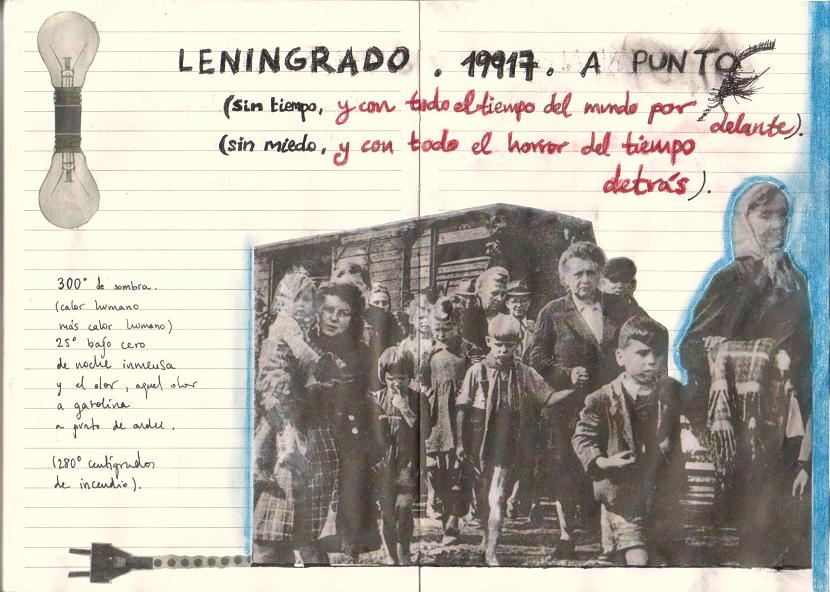 LENINGRADO. 19917. A PUNTO
(sin tiempo, y con todo el tiempo del mundo por
delante).
(sin miedo, y con todo el horror del tiempo
detrás).
300° de sombra.
(calor humano
más calor humano)
25° bajo cero
de noche inmensa
y el olor, aquel olor
a gasolina
a punto de arder.
(280° centígrados
de incendio).